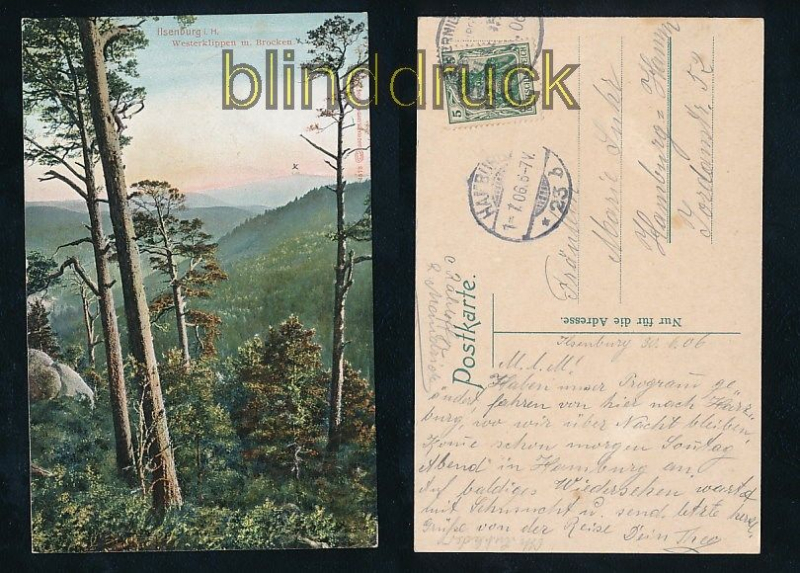 Ilsenburg i. H.
Westerklippen m. Brocken.
blinddruck
5
HAMBURG
1-7.06.6-7V.
* 23 b
Fräulein
Marie Luhr
Hamburg = Hamm
Postkarte.
Nur für die Adresse.
Ilsenburg 30. 6. 06
M. l. M!
Haben unser Program ge-
ändert, fahren von hier nach Harz-
burg, wo wir über Nacht bleiben
Komme schon morgen Sonntag
Abend in Hamburg an.
Auf baldiges Wiedersehen wartet
mit Sehnsucht u. send. letzte herzl.
Grüße von der Reise Dein Theo